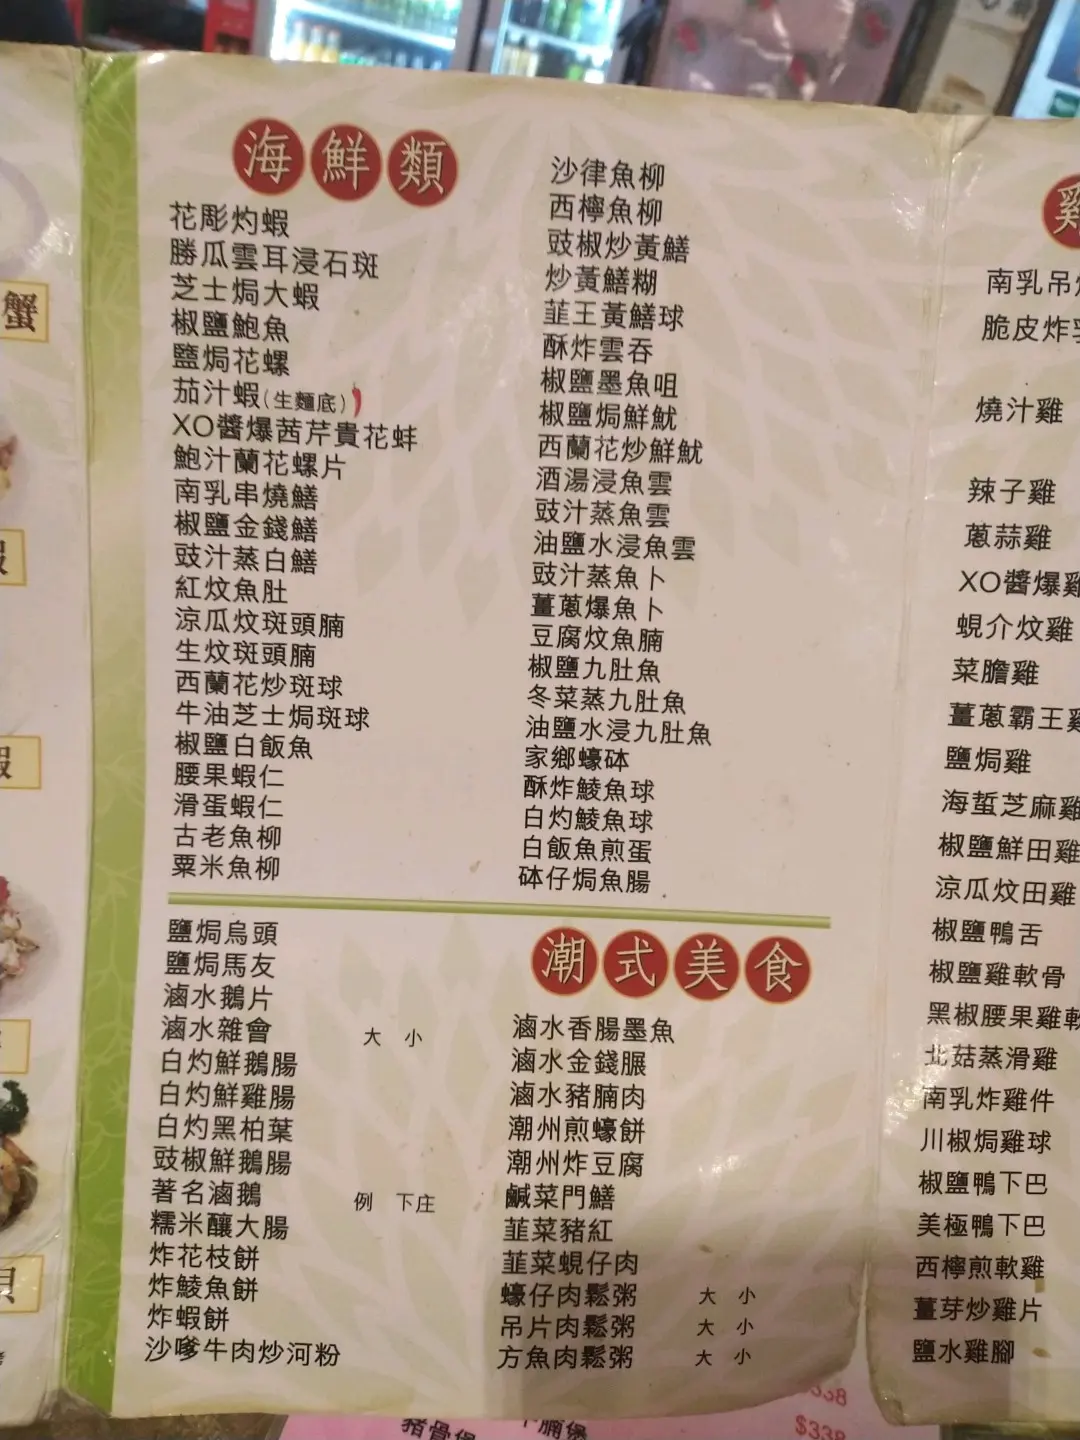 蟹
海鮮類
花彫灼蝦
勝瓜雲耳浸石斑
芝士焗大蝦
椒鹽鮑魚
鹽焗花螺
茄汁蝦(生麵底)
XO醬爆茜芹貴花蚌
鮑汁蘭花螺片
南乳串燒鱔
椒鹽金錢鱔
豉汁蒸白鱔
紅炆魚肚
涼瓜炆斑頭腩
生炆斑頭腩
西蘭花炒斑球
牛油芝士焗斑球
椒鹽白飯魚
腰果蝦仁
滑蛋蝦仁
古老魚柳
粟米魚柳
沙律魚柳
西檸魚柳
豉椒炒黃鱔
炒黃鱔糊
韮王黃鱔球
酥炸雲吞
椒鹽墨魚咀
椒鹽焗鮮魷
西蘭花炒鮮魷
酒湯浸魚雲
豉汁蒸魚雲
油鹽水浸魚雲
豉汁蒸魚卜
薑蔥爆魚卜
豆腐炆魚腩
椒鹽九肚魚
冬菜蒸九肚魚
油鹽水浸九肚魚
家鄉蠔砵
酥炸鯪魚球
白灼鯪魚球
白飯魚煎蛋
砵仔焗魚腸
鹽焗烏頭
鹽焗馬友
滷水鵝片
滷水雜會 大 小
白灼鮮鵝腸
白灼鮮雞腸
白灼黑柏葉
豉椒鮮鵝腸
著名滷鵝 例 下庄
糯米釀大腸
炸花枝餅
炸鯪魚餅
炸蝦餅
沙嗲牛肉炒河粉
潮式美食
滷水香腸墨魚
滷水金錢𦟌
滷水豬腩肉
潮州煎蠔餅
潮州炸豆腐
鹹菜門鱔
韮菜豬紅
韮菜蜆仔肉
蠔仔肉鬆粥 大 小
吊片肉鬆粥 大 小
方魚肉鬆粥 大 小
南乳吊
脆皮炸
燒汁雞
辣子雞
蔥蒜雞
XO醬爆
蜆介炆雞
菜膽雞
薑蔥霸王
鹽焗雞
海蜇芝麻雞
椒鹽鮮田雞
涼瓜炆田雞
椒鹽鴨舌
椒鹽雞軟骨
黑椒腰果雞
北菇蒸滑雞
南乳炸雞件
川椒焗雞球
椒鹽鴨下巴
美極鴨下巴
西檸煎軟雞
薑芽炒雞片
鹽水雞腳
豬骨煲
腩煲
$338